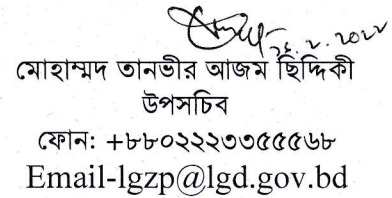 ২৪.২.২০২২
মোহাম্মদ তানভীর আজম ছিদ্দিকী
উপসচিব
ফোন: +৮৮০২২২৩৩৫৫৫৬৮
Email-lgzp@lgd.gov.bd